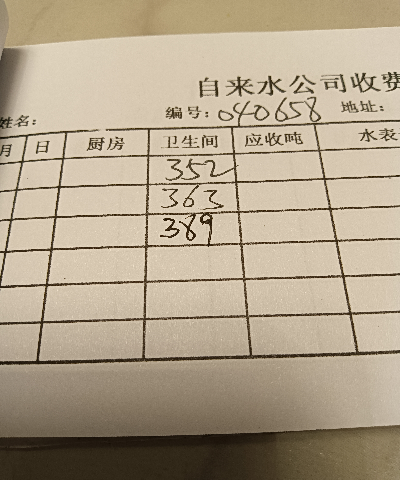 自来水公司收费
姓名： 编号：040658 地址：
月 日 厨房 卫生间 应收吨 水表
352
363
389